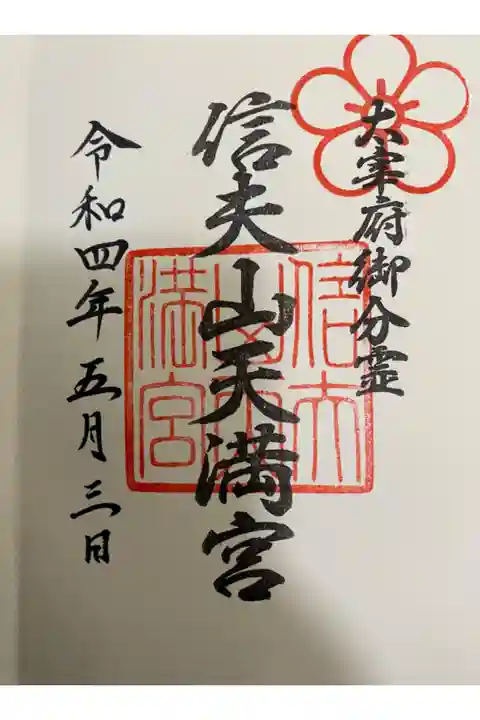 大宰府御分霊
信夫山天満宮
令和四年五月三日
信夫
山天
満宮